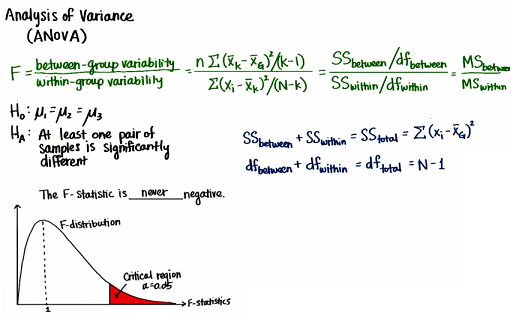 Analysis of Variance
(ANOVA)
F = between-group variability / within-group variability = n Σ(x̄ₖ - x̄_G)²/(k-1) / Σ(xᵢ - x̄ₖ)²/(N-k) = SS_between/df_between / SS_within/df_within = MS_between / MS_within
H₀: μ₁ = μ₂ = μ₃
H_A: At least one pair of
samples is significantly
different
SS_between + SS_within = SS_total = Σ(xᵢ - x̄_G)²
df_between + df_within = df_total = N-1
The F-statistic is never negative.
F-distribution
Critical region
α=0.05
F-statistics
1